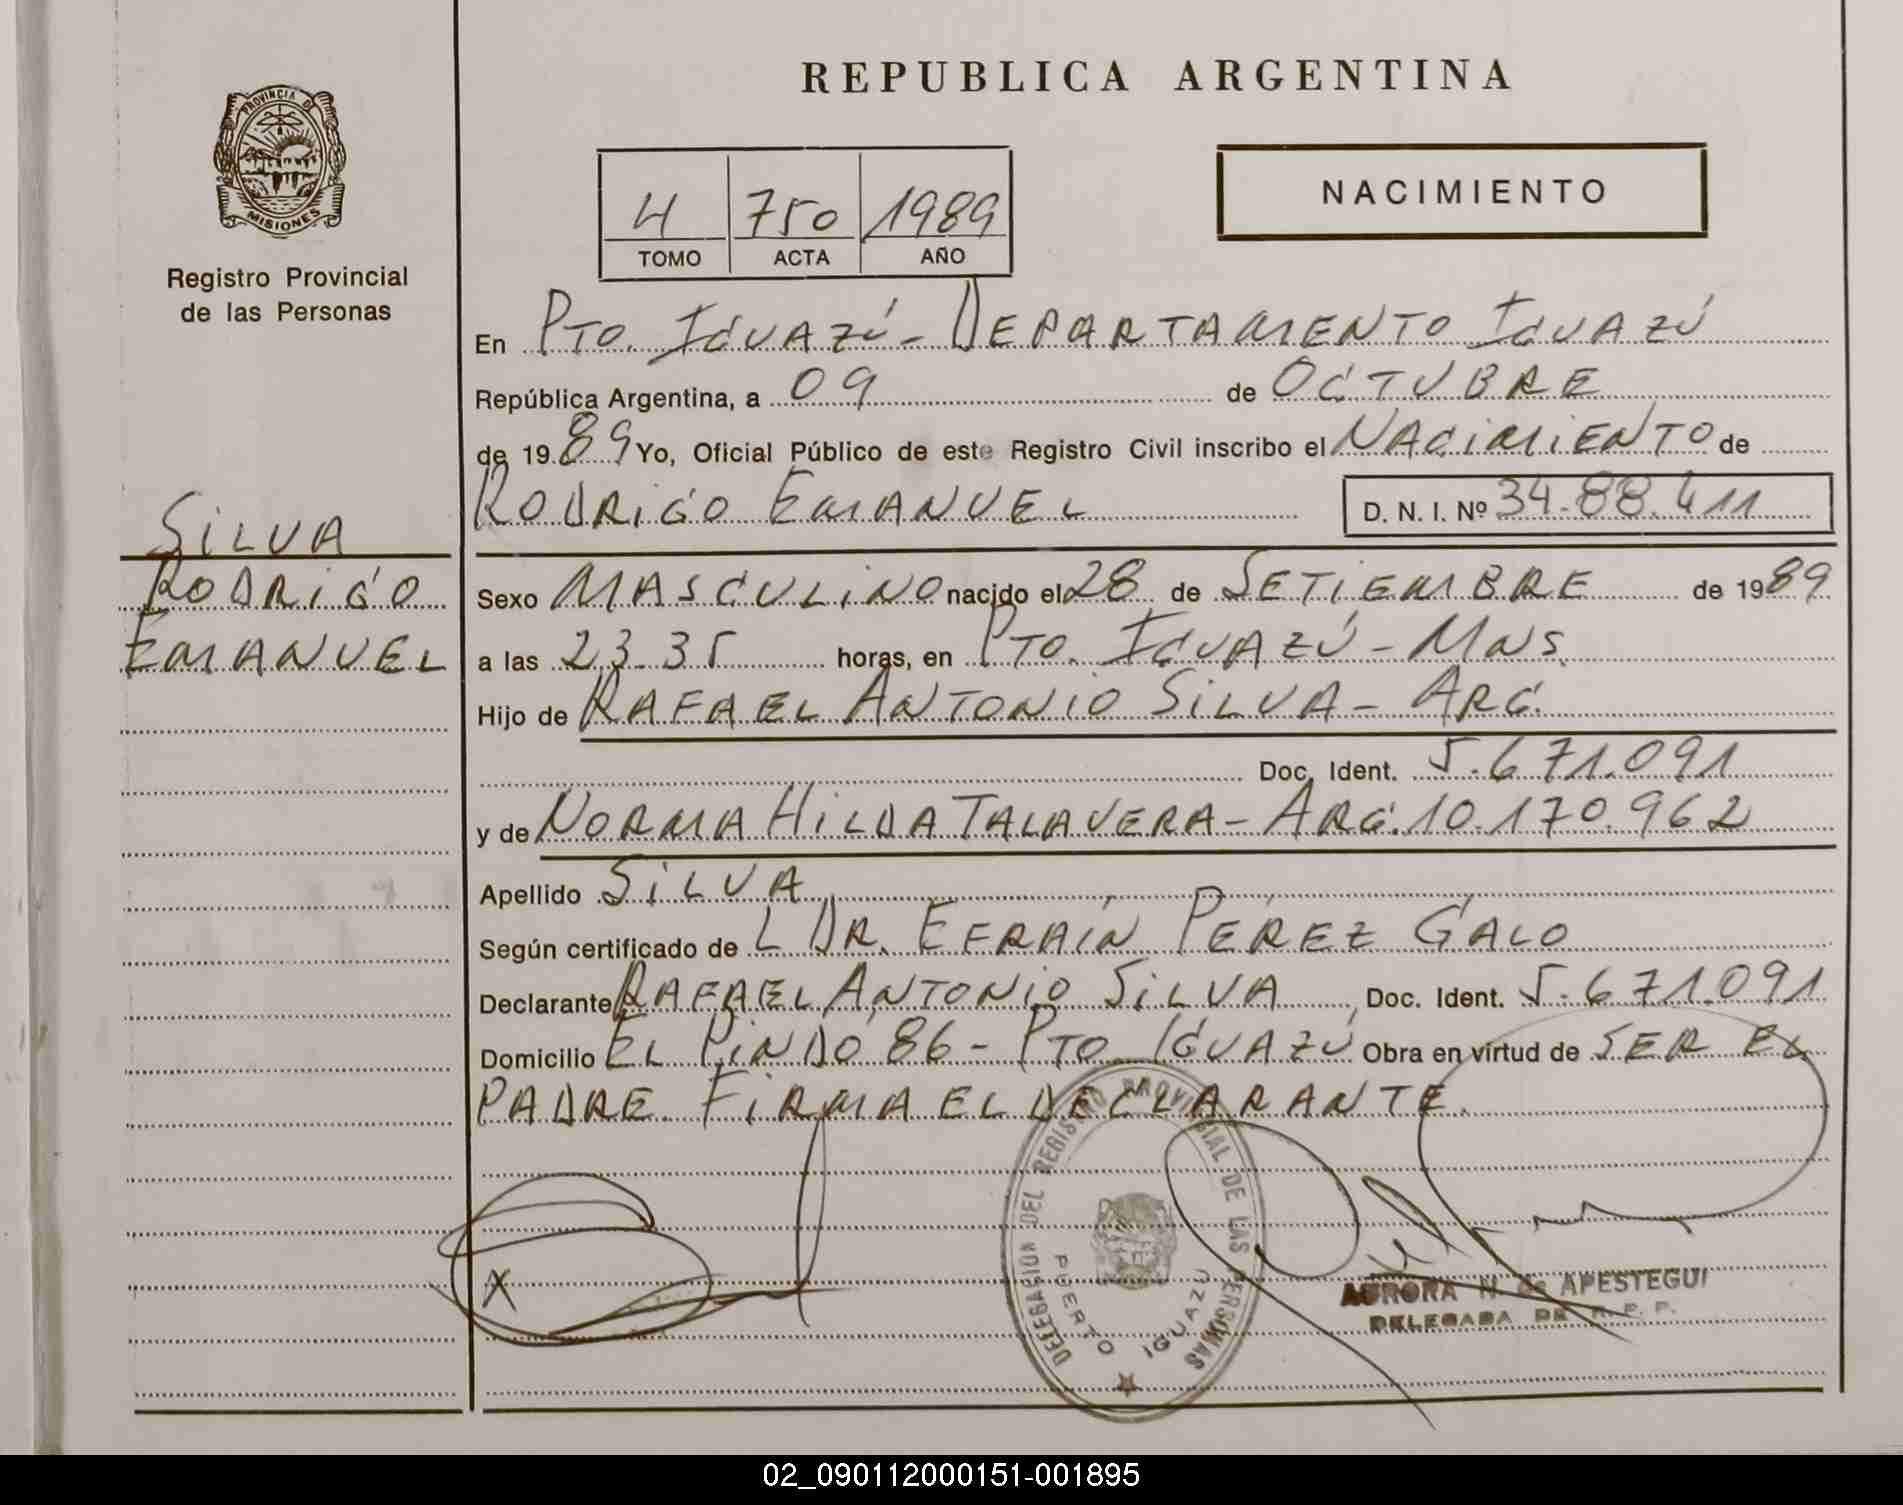 REPUBLICA ARGENTINA
PROVINCIA DE
MISIONES
Registro Provincial
de las Personas
4 750 1989
TOMO ACTA AÑO
NACIMIENTO
En PTO. IGUAZÚ - DEPARTAMENTO IGUAZÚ
República Argentina, a 09 de OCTUBRE
de 19 89 Yo, Oficial Público de este Registro Civil inscribo el NACIMIENTO de
RODRIGO EMANUEL D. N. I. Nº 34.88.411
SILVA
RODRIGO
EMANUEL
Sexo MASCULINO nacido el 28 de SETIEMBRE de 19 89
a las 23.35 horas, en PTO. IGUAZÚ - MNS.
Hijo de RAFAEL ANTONIO SILVA - ARG.
Doc. Ident. 5.671.091
y de NORMA HILDA TALAVERA - ARG. 10.170.962
Apellido SILVA
Según certificado de L DR. EFRAÍN PÉREZ GALO
Declarante RAFAEL ANTONIO SILVA, Doc. Ident. 5.671.091
Domicilio EL PINDÓ 86 - PTO IGUAZÚ Obra en virtud de SER EL
PADRE. FIRMA EL DECLARANTE.
X
DELEGACION DEL REGISTRO PROVINCIAL DE LAS PERSONAS
PUERTO IGUAZU
AURORA N. de APESTEGUI
DELEGADA DE R. P. P.
02_090112000151-001895